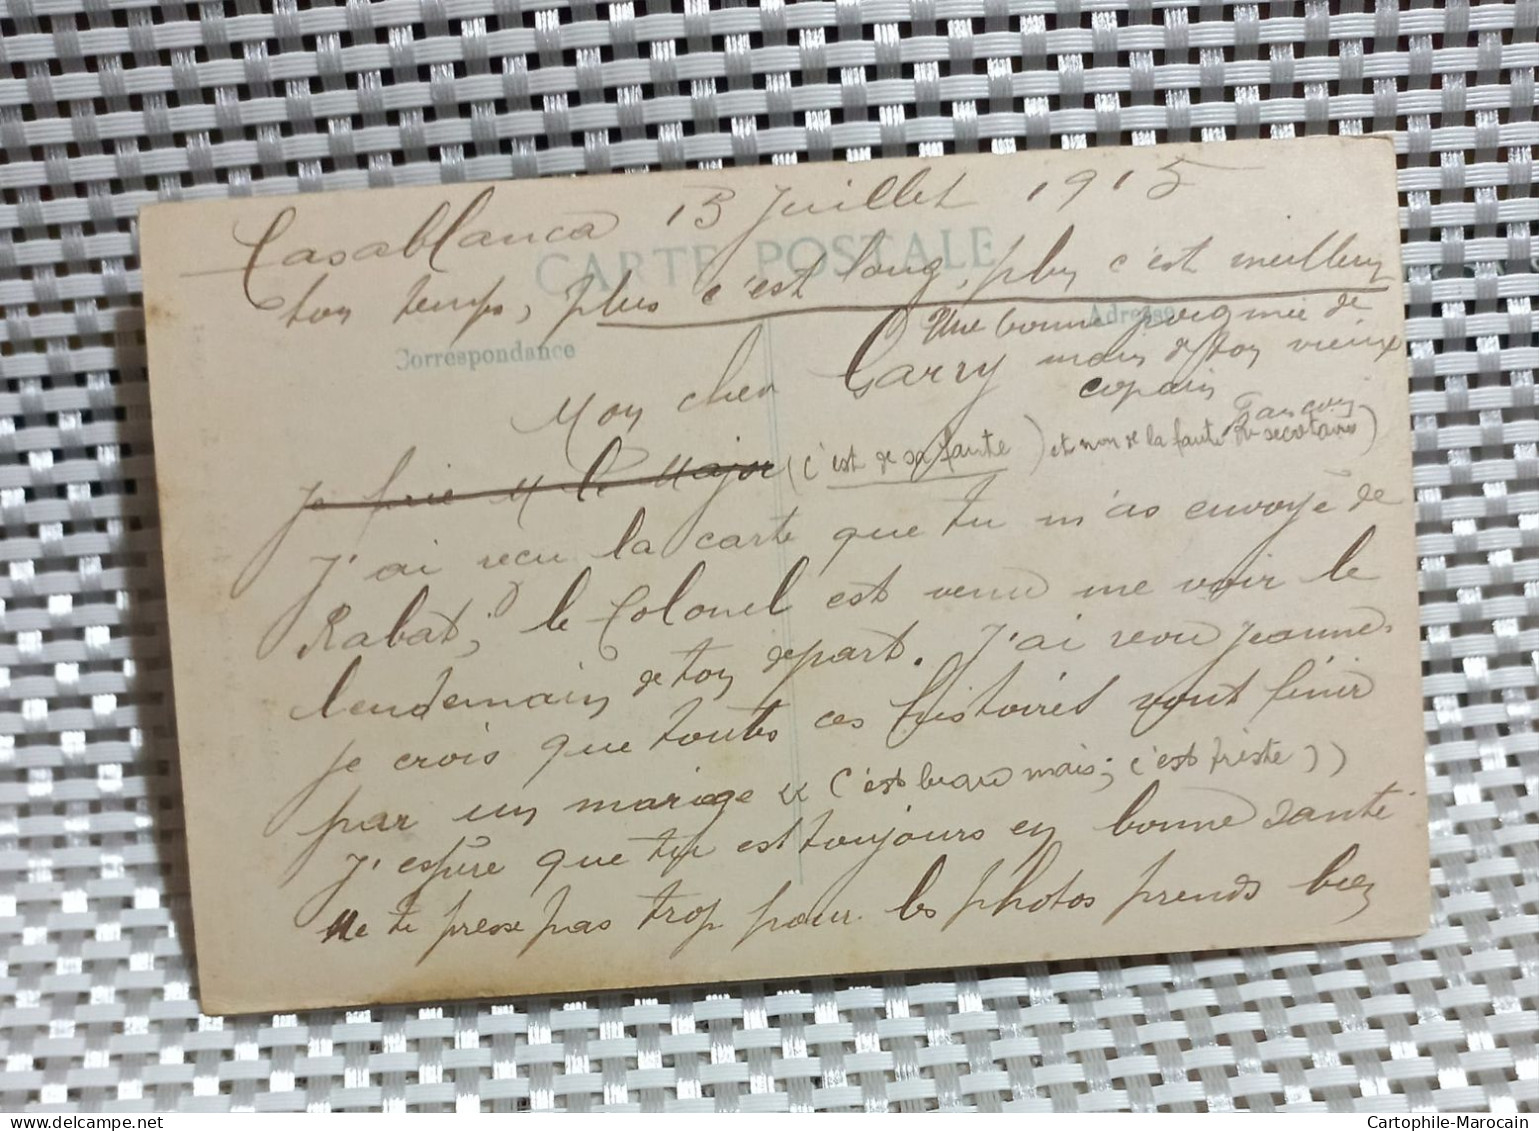 Casablanca 13 Juillet 1915
CARTE POSTALE
ton temps, plus c'est long, plus c'est meilleur
Correspondance
Adresse
Une bonne poignée de
main de ton vieux
copain
Mon cher Garry
Je prie M le Major (c'est de sa faute) et non de la faute du secrétaire)
J'ai recu la carte que tu m'as envoyé de
Rabat; le Colonel est venu me voir le
lendemain de ton depart. J'ai revu Jeanne.
je crois que toutes ces histoires vont finir
par un mariage « c'est beau mais; c'est triste))
J'espère que tu est toujours en bonne santé
Ne te presse pas trop pour les photos prends bien
Cartophile-Marocain